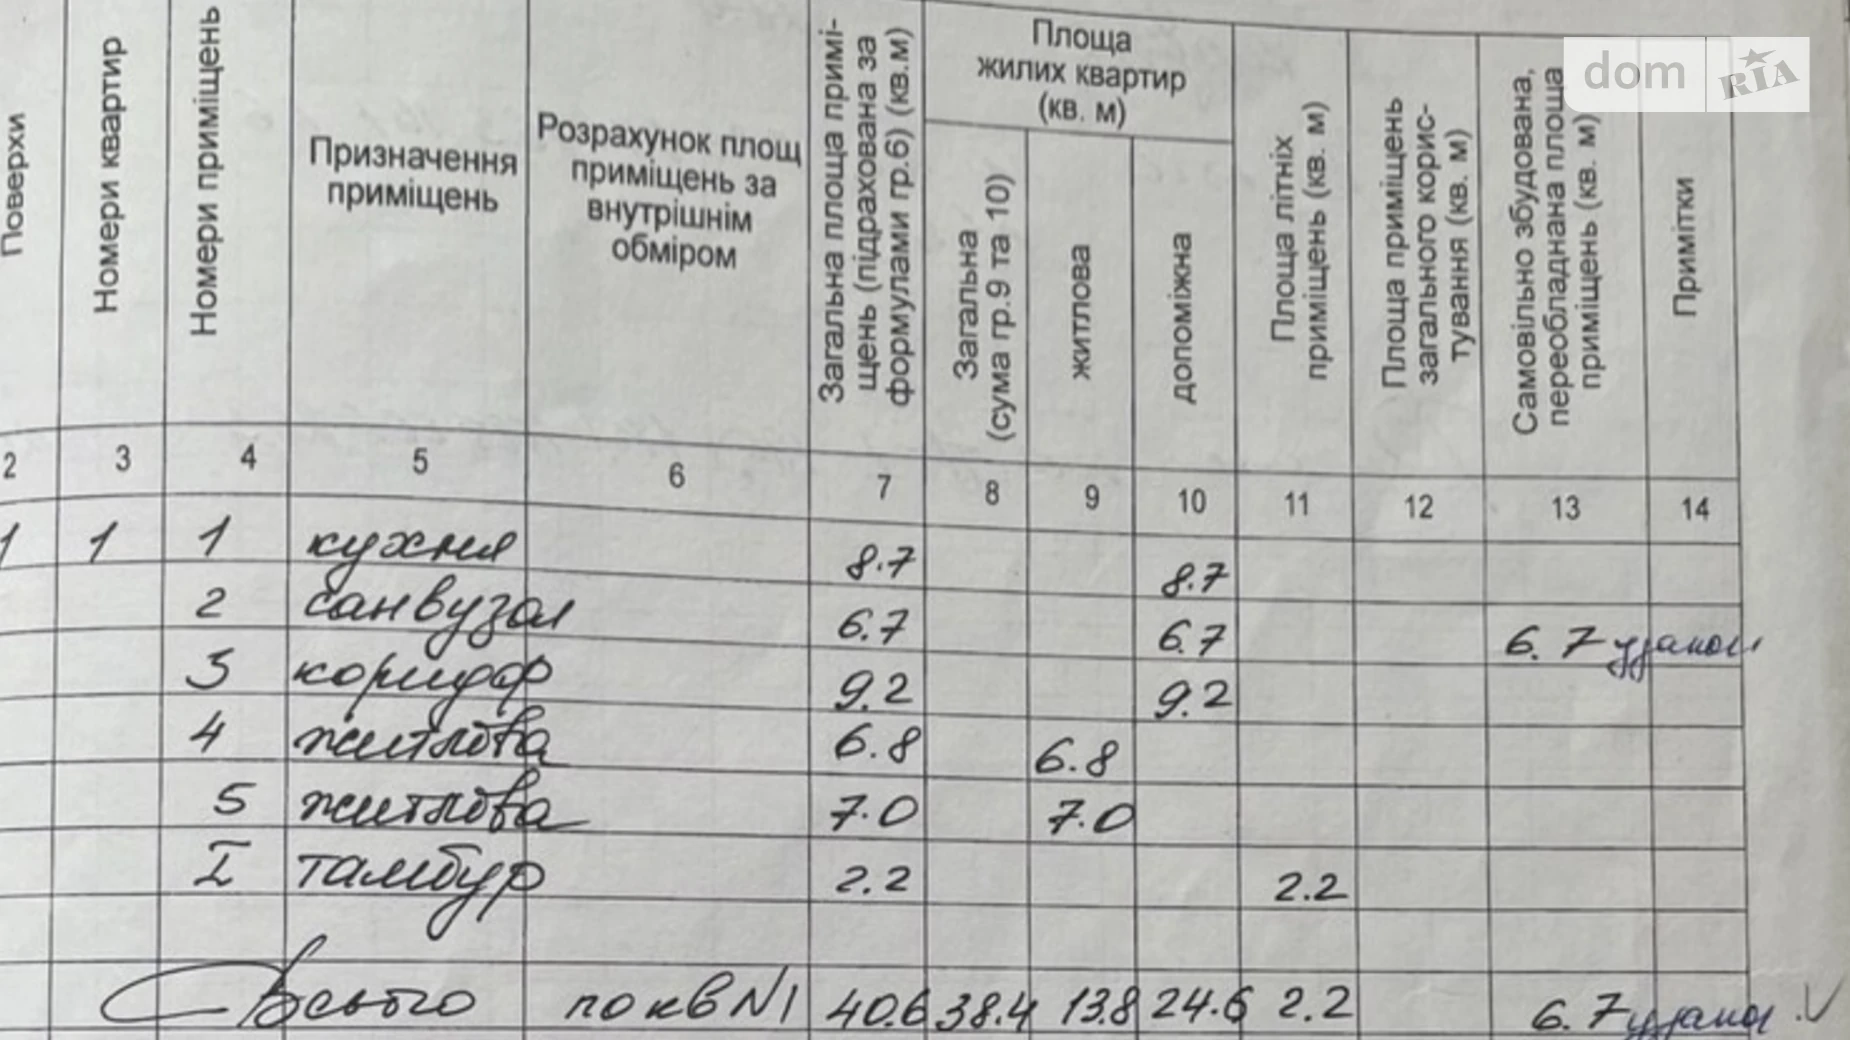 dom RIA
Поверхи
Номери квартир
Номери приміщень
Призначення
приміщень
Розрахунок площ
приміщень за
внутрішнім
обміром
Загальна площа примі-
щень (підрахована за
формулами гр.6) (кв.м)
Площа
жилих квартир
(кв. м)
Загальна
(сума гр.9 та 10)
житлова
допоміжна
Площа літніх
приміщень (кв. м)
Площа приміщень
загального корис-
тування (кв. м)
Самовільно збудована,
переобладнана площа
приміщень (кв. м)
Примітки
2 3 4 5 6 7 8 9 10 11 12 13 14
1 1 1 кухня 8.7 8.7
2 санвузол 6.7 6.7 6.7
3 коридор 9.2 9.2
4 житлова 6.8 6.8
5 житлова 7.0 7.0
I тамбур 2.2 2.2
Всього по кв N1 40.6 38.4 13.8 24.6 2.2 6.7